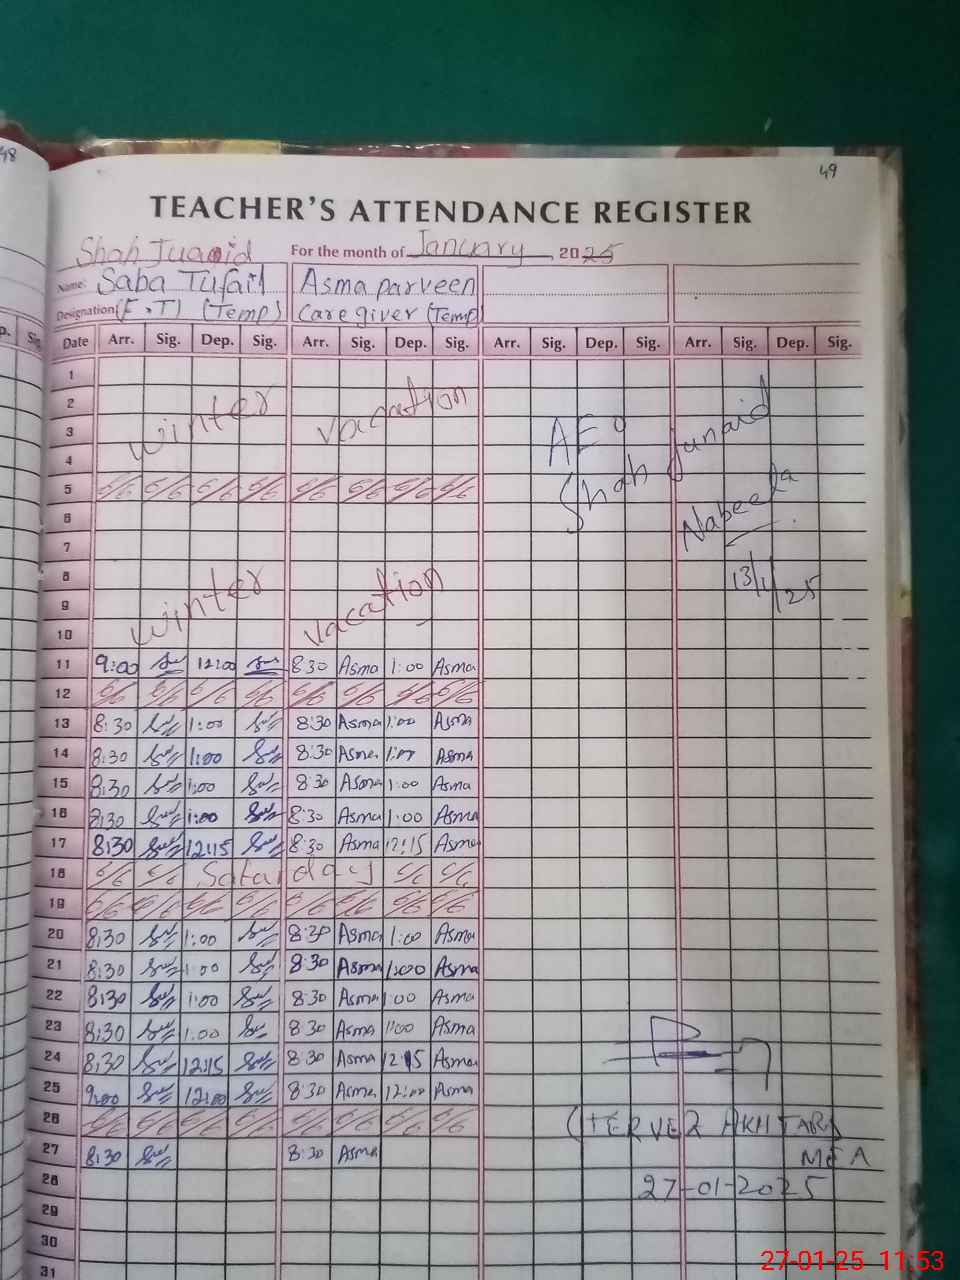 48
49
TEACHER'S ATTENDANCE REGISTER
Shah Juanid For the month of January, 2025
Name: Saba Tufail Asma parveen
Designation (E.T) (Temp) Care giver (Temp)
Date Arr. Sig. Dep. Sig. Arr. Sig. Dep. Sig. Arr. Sig. Dep. Sig. Arr. Sig. Dep. Sig.
1
2 winter vacation
3 AEO Shah Junaid
4
5
6 Nabeela
7
8 winter vacation 13/1/25
9
10
11 9:00 12:00 8:30 Asma 1:00 Asma
12
13 8:30 1:00 8:30 Asma 1:00 Asma
14 8:30 1:00 8:30 Asma 1:00 Asma
15 8:30 1:00 8:30 Asma 1:00 Asma
16 8:30 1:00 8:30 Asma 1:00 Asma
17 8:30 12:15 8:30 Asma 12:15 Asma
18 Saturday
19
20 8:30 1:00 8:30 Asma 1:00 Asma
21 8:30 1:00 8:30 Asma 1:00 Asma
22 8:30 1:00 8:30 Asma 1:00 Asma
23 8:30 1:00 8:30 Asma 1:00 Asma
24 8:30 12:15 8:30 Asma 12:15 Asma
25 9:00 12:00 8:30 Asma 12:00 Asma
26 AKHTAR)
27 8:30 8:30 Asma MEA
28 27-01-2025
29
30
31
27-01-25 11:53